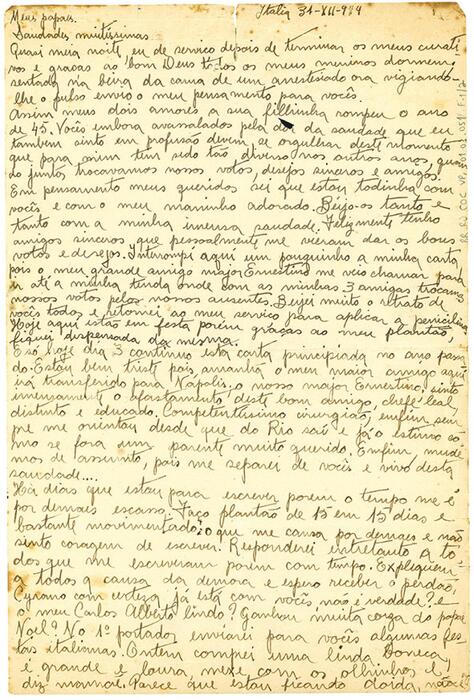 Meus papais. Italia, 31-XII-944
Saudades muitissimas
Quasi meia noite, eu de serviço depois de terminar os meus curati
vos e graças ao bom Deus todos os meus meninos dormem,
sentada na beira da cama de um anestesiado ora vigiando-
lhe o pulso envio o meu pensamento para vocês.
Assim meus dois amores a sua filhinha rompeu o ano
de 45. Vocês embora avassalados pela dor da saudade que eu
tambem sinto em profusão devem se orgulhar deste momento
que para mim tem sido tão diverso nos outros anos, quan
do juntos trocavamos nossos votos, desejos sinceros e amigos.
Em pensamento meus queridos sei que estou todinha com
vocês e com o meu maninho adorado. Beijo-os tanto e
tanto com a minha imensa saudade. Felizmente tenho
amigos sinceros que pessoalmente me vieram dar os bons
votos e desejos. Interrompi aqui um pouquinho a minha carta
pois o meu grande amigo major Ernestino me veio chamar para
ir até a minha tenda onde com as minhas 3 amigas trocamos
nossos votos pelos nossos ausentes. Beijei muito o retrato de
vocês todos e retornei ao meu serviço para aplicar a penicilina
Hoje aqui estão em festa porém graças ao meu plantão,
fiquei dispensada da mesma.
E só hoje dia 3 continuo esta carta principiada no ano passa
do. Estou bem triste pois amanhã o meu maior amigo aqui
irá transferido para Napolis, o nosso major Ernestino, sinto
imensamente o afastamento deste bom amigo, chefe leal,
distinto e educado. Competentissimo cirurgião, enfim, sem
pre me orientou desde que do Rio saí e já o estimo só
mo se fora um parente muito querido. Enfim, mude
mos de assunto, pois me separei de vocês e vivo desta
saudade....
Há dias que estou para escrever porem o tempo me é
por demais escasso. Faço plantão de 15 em 15 dias e
bastante movimentado, o que me cansa por demais e não
sinto coragem de escrever. Responderei entretanto a to
dos que me escreveram porem com tempo. Expliquem
a todos a causa da demora e espero receber o perdão.
Cyrano com certeza já está com vocês, não é verdade? e
o meu Carlos Alberto lindo? Ganhou muita coisa do papai
Noel? No 1º portador enviarei para vocês algumas
italianas. Ontem comprei uma linda boneca,
é grande e loura, mexe com os olhinhos e
diz mamãe. Parece que estou ficando doida,